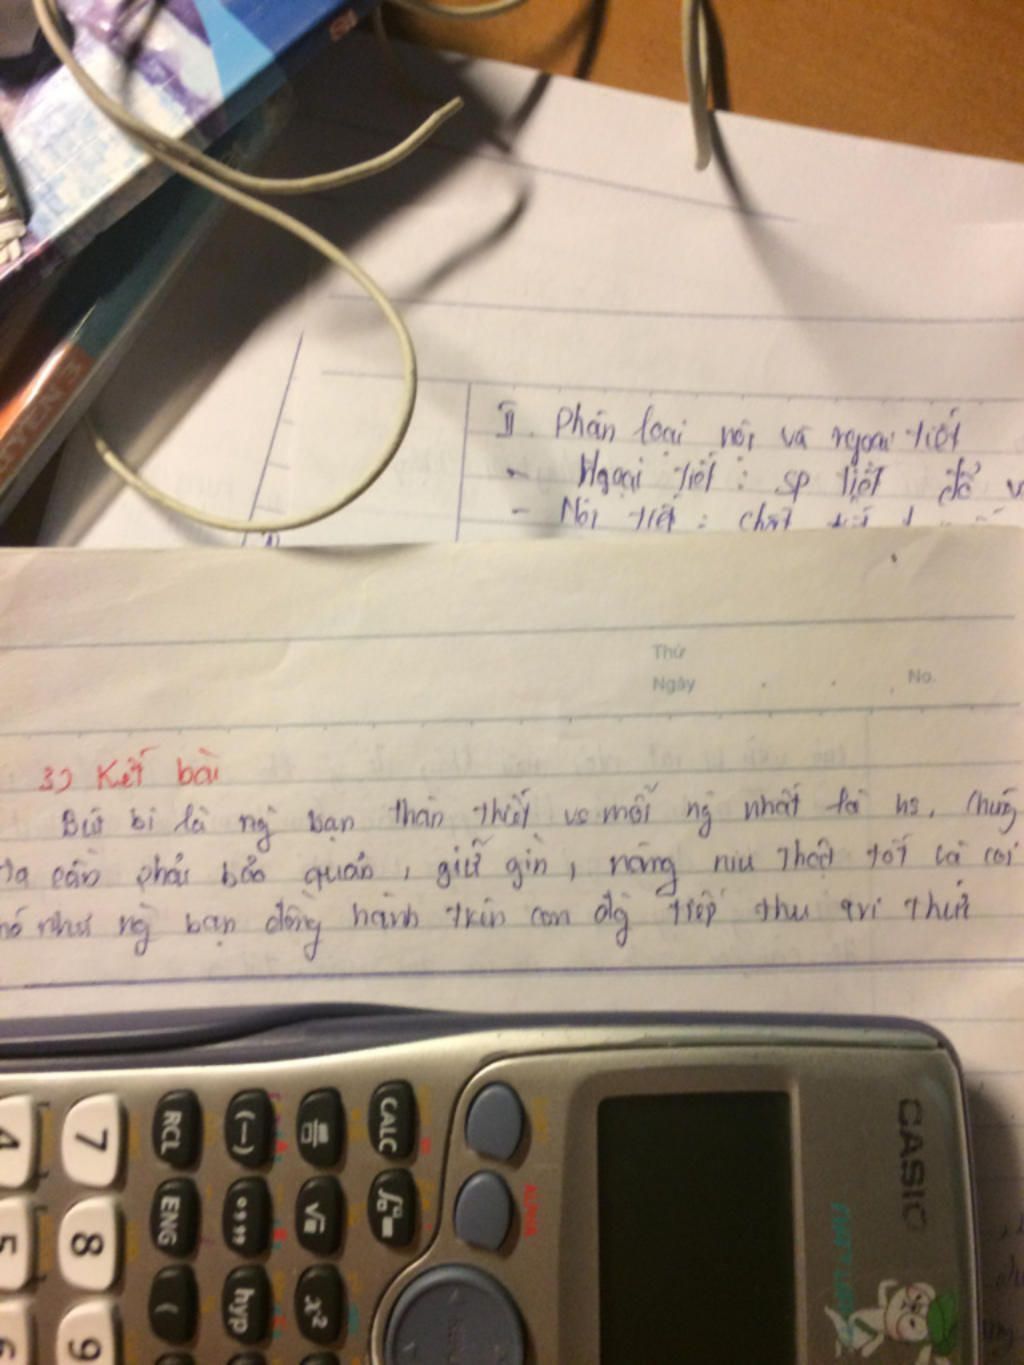 II. Phân loại nội và ngoại tiết
- Ngoại tiết : sp tiết đổ
- Nội tiết : chất tiết
Thứ
Ngày
No.
3) Kết bài
Bút bi là ng bạn thân thiết vs mỗi ng nhất là hs. Chúng
ta cần phải bảo quản, giữ gìn, nâng niu thật tốt và coi
nó như ng bạn đồng hành trên con đg tiếp thu tri thức
CASIO
ALPHA
CALC
RCL
(−)
ENG
hyp
√
x²
(
7
8
9
4
5
6